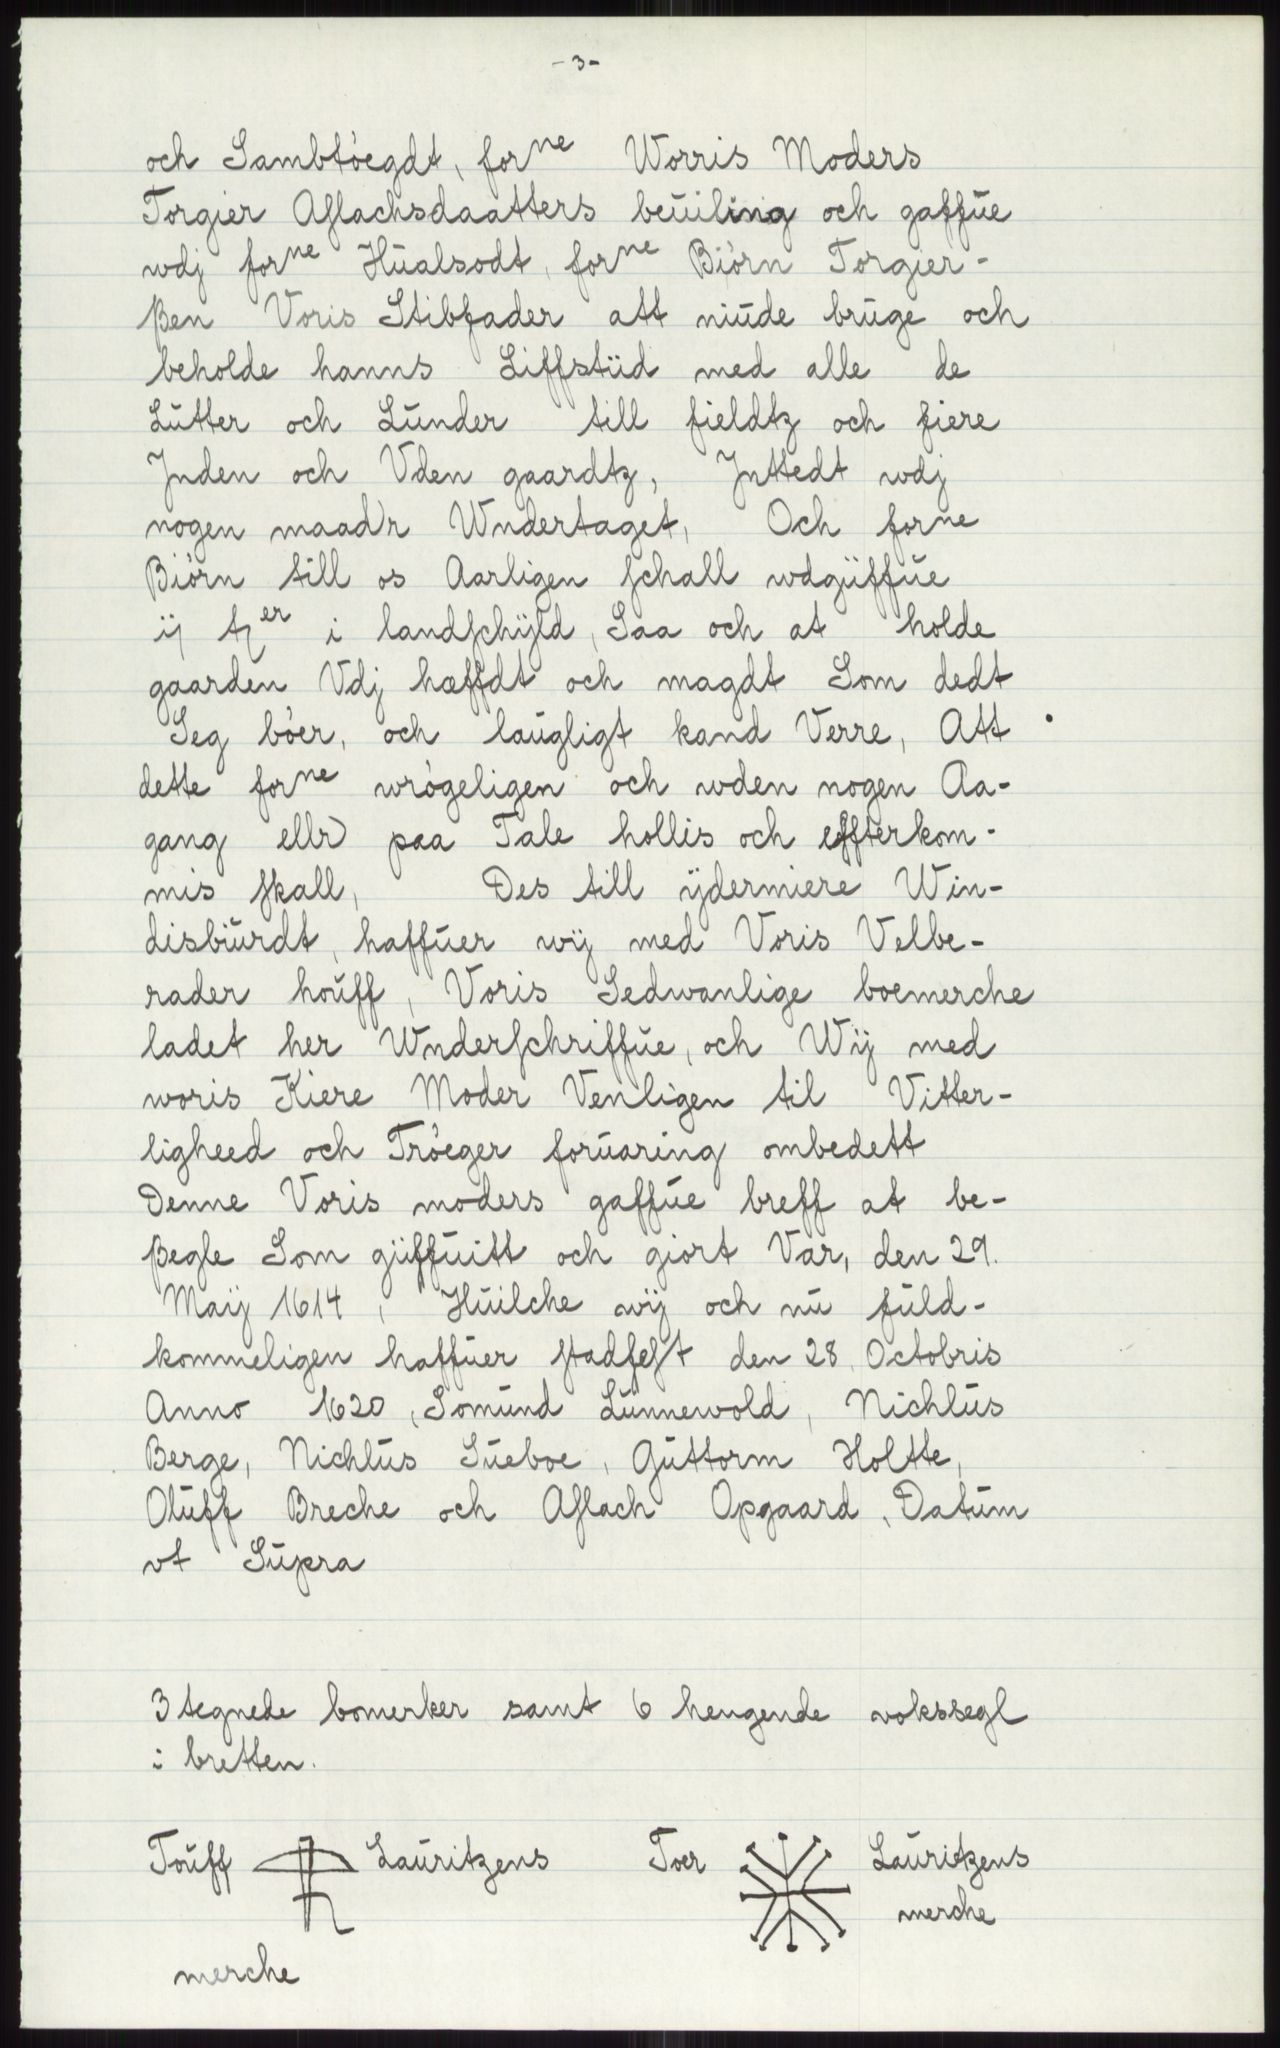 - 3 -
och Sambtóegdt, forne Worris Moders
Torgier Aslachsdaatters beuiling och gaffue
wdj forne Hualsodt, forne Biórn Torgier-
ßen Voris Stibfader att niude bruge och
beholde hanns Liffstiid med alle de
Lutter och Lunder till fieldtz och fiere
Jnden och Vden gaardtz, Jnttedt wdj
nogen maadr Wndertaget, Och forne
Biórn till os Aarligen schall wdgiiffue
ij tzer i landschÿld, Saa och at holde
gaarden Vdj hæffdt och magdt Som dedt
Seg bóer, och laugligt kand Verre, Att
dette forne wrógeligen och wden nogen Aa-
gang ellr paa Tale hollis och effterkom-
mis skall, Des till ÿdermiere Win-
disbürdt, haffuer wÿ med Voris Velbe-
rader houff, Voris Sedwanlige boemerche
ladet her Wnderschriffue, och Wÿ med
woris Kiere Moder Venligen til Vitter-
ligheed och Tróeger foruaring ombedett
Denne Voris moders gaffue breff at be-
ßegle Som giiffuitt och giort Var, den 29.
Maÿ 1614, Huilche wÿ och nu fuld-
kommeligen haffuer stadfest den 28. Octobris
Anno 1620, Somund Lunnewold, Nichlus
Berge, Nichlus Sueboe, Guttorm Holtte,
Oluff Breche och Aslach Opgaard, Datum
vt Supra
3 tegnede bomerker samt 6 hengende vokssegl
i bretten.
Touff Lauritzens Toer Lauritzens
merche
merche